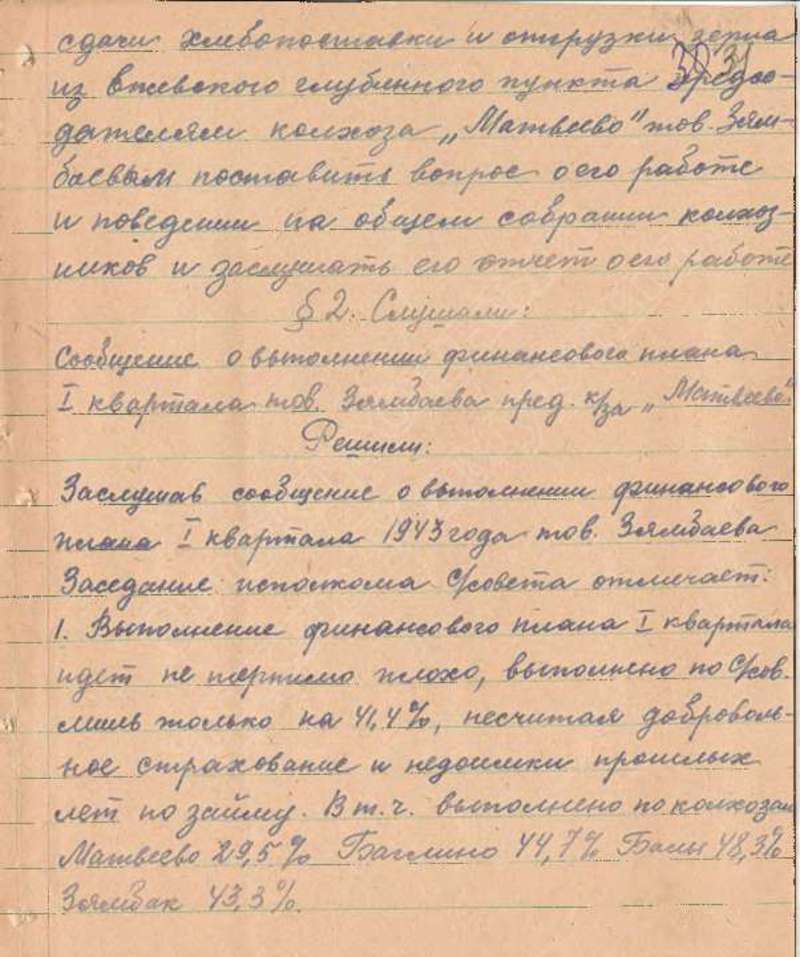 сдачи хлебопоставки и отгрузки зерна
30 31
из Втевского глубинного пункта предсе-
дателям колхоза „Матвеево" тов. Зям-
баевым поставить вопрос о его работе
и поведении на общем собрании колхоз-
ников и заслушать его отчет о его работе
§ 2. Слушали:
Сообщение о выполнении финансового плана
I квартала тов. Зямбаева пред. к/за „Матвеево"
Решили:
Заслушав сообщение о выполнении финансового
плана I квартала 1943 года тов. Зямбаева
Заседание исполкома С/совета отмечает:
1. Выполнение финансового плана I квартала
идет не терпимо плохо, выполнено по С/сов.
лишь только на 41,4%, несчитая доброволь-
ное страхование и недоимки прошлых
лет по займу. В т.ч. выполнено по колхозам
Матвеево 29,5% Баглино 44,7% Балы 48,3%
Зямбак 43,3%.